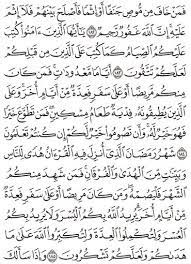 فَمَنْ خَافَ مِن مُّوصٍ جَنَفًا أَوْ إِثْمًا فَأَصْلَحَ بَيْنَهُمْ فَلَآ إِثْمَ
عَلَيْهِ إِنَّ ٱللَّهَ غَفُورٌ رَّحِيمٌ ١٨٢ يَٰٓأَيُّهَا ٱلَّذِينَ ءَامَنُوا۟ كُتِبَ
عَلَيْكُمُ ٱلصِّيَامُ كَمَا كُتِبَ عَلَى ٱلَّذِينَ مِن قَبْلِكُمْ
لَعَلَّكُمْ تَتَّقُونَ ١٨٣ أَيَّامًا مَّعْدُودَٰتٍ فَمَن كَانَ
مِنكُم مَّرِيضًا أَوْ عَلَىٰ سَفَرٍ فَعِدَّةٌ مِّنْ أَيَّامٍ أُخَرَ وَعَلَى
ٱلَّذِينَ يُطِيقُونَهُۥ فِدْيَةٌ طَعَامُ مِسْكِينٍ فَمَن تَطَوَّعَ خَيْرًا
فَهُوَ خَيْرٌ لَّهُۥ وَأَن تَصُومُوا۟ خَيْرٌ لَّكُمْ إِن كُنتُمْ تَعْلَمُونَ
١٨٤ شَهْرُ رَمَضَانَ ٱلَّذِىٓ أُنزِلَ فِيهِ ٱلْقُرْءَانُ هُدًى لِّلنَّاسِ
وَبَيِّنَٰتٍ مِّنَ ٱلْهُدَىٰ وَٱلْفُرْقَانِ فَمَن شَهِدَ مِنكُمُ
ٱلشَّهْرَ فَلْيَصُمْهُ وَمَن كَانَ مَرِيضًا أَوْ عَلَىٰ سَفَرٍ فَعِدَّةٌ
مِّنْ أَيَّامٍ أُخَرَ يُرِيدُ ٱللَّهُ بِكُمُ ٱلْيُسْرَ وَلَا يُرِيدُ بِكُمُ
ٱلْعُسْرَ وَلِتُكْمِلُوا۟ ٱلْعِدَّةَ وَلِتُكَبِّرُوا۟ ٱللَّهَ عَلَىٰ مَا
هَدَىٰكُمْ وَلَعَلَّكُمْ تَشْكُرُونَ ١٨٥ وَإِذَا سَأَلَكَ